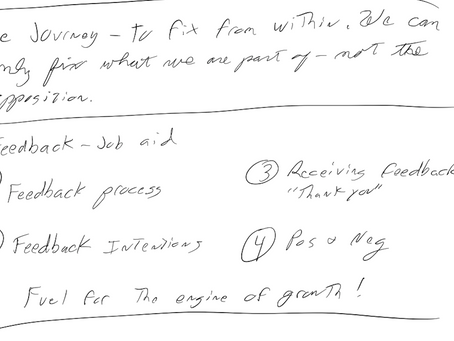 e Journey - to fix from within. We can
nly fix what we are part of - not the
pposition.
eedback - Job aid
Feedback process
③ Receiving Feedback
"Thank you"
Feedback Intentions
④ Pos & Neg
Fuel for the engine of growth!